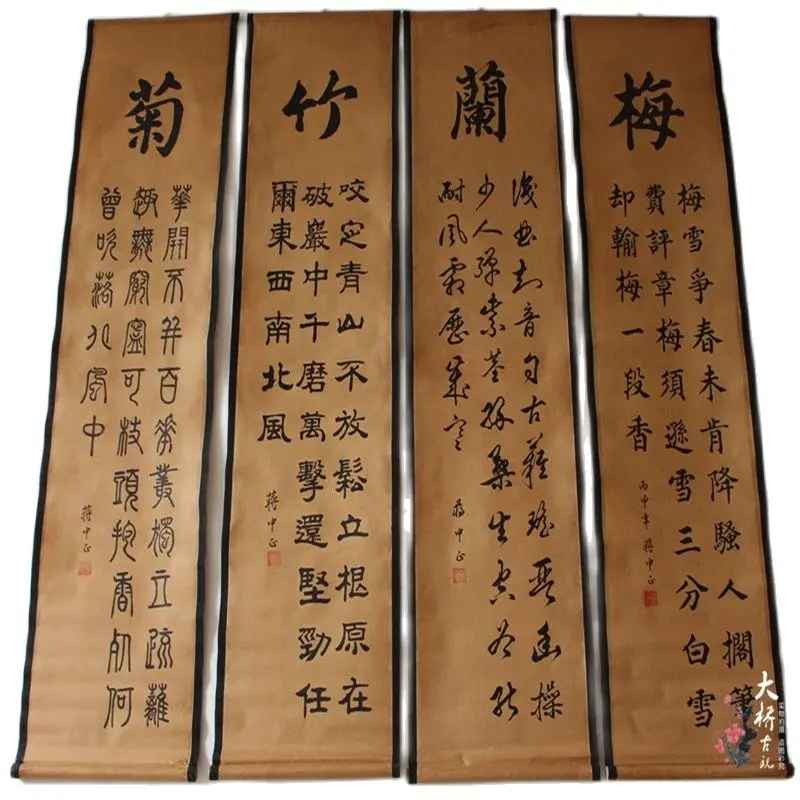 梅
梅雪爭春未肯降騷人擱筆
費評章梅須遜雪三分白雪
却輸梅一段香
丙申年蔣中正
蘭
曲知音自古難瑤琴幽操
少人彈紫莖綠葉生空谷能
耐風霜歷歲寒
蔣中正
竹
咬定青山不放鬆立根原在
破巖中千磨萬擊還堅勁任
爾東西南北風
蔣中正
菊
華開不并百華叢獨立疏籬
趣無窮寧可枝頭抱香死何
曾吹落北風中
蔣中正
大桥古玩